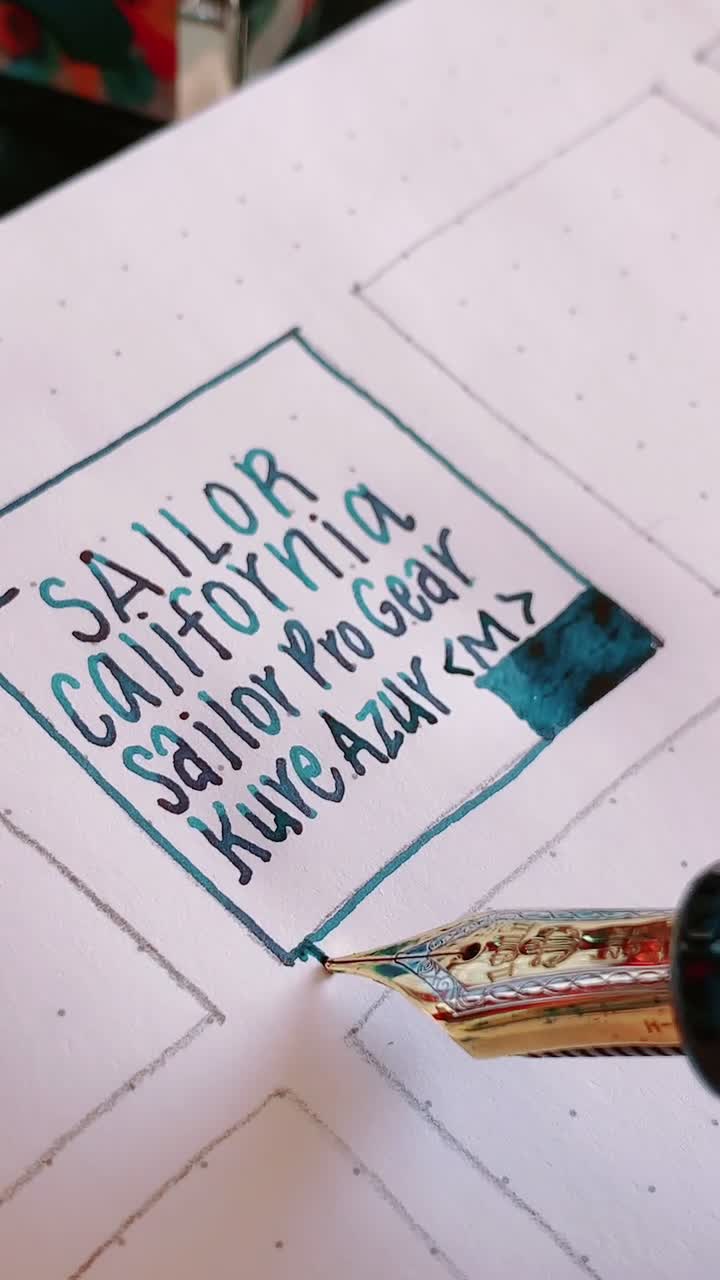 SAILOR
California
Sailor Pro Gear
Kure Azur <M>